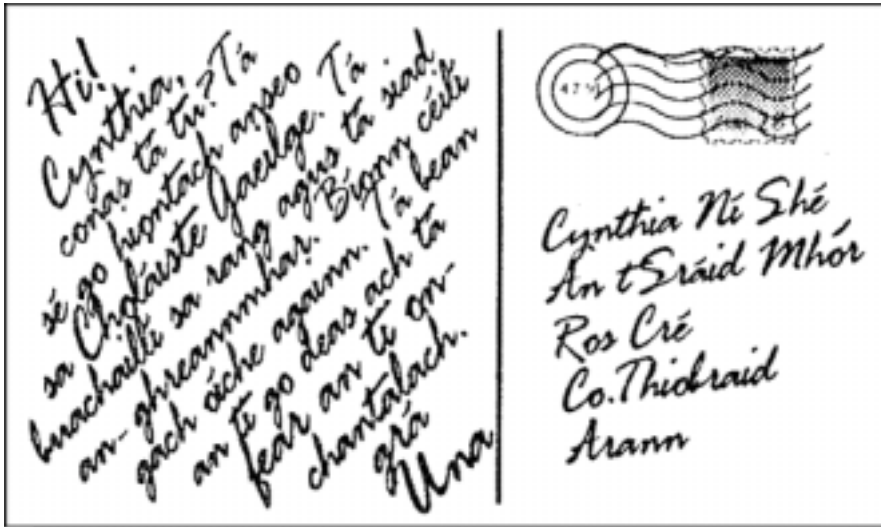 Hi!
Cynthia,
conas tá tú? Tá
sé go hiontach anseo
sa Choláiste Gaeilge. Tá
buachaillí sa rang agus tá siad
an-ghreannmhar. Bíonn céilí
gach oíche againn. Tá bean
an tí go deas ach tá
fear an tí an-
chantalach.
grá
Una
Cynthia Ní Shé
An tSráid Mhór
Ros Cré
Co. Thiobraid
Arann